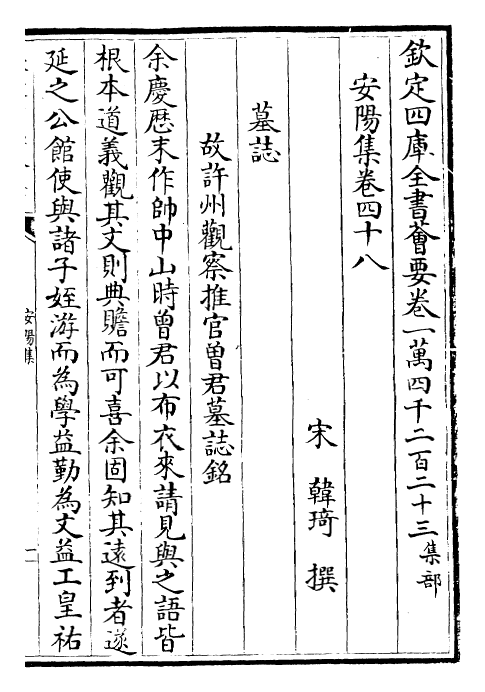 欽定四庫全書薈要卷一萬四千二百二十三集部
安陽集卷四十八
宋韓琦撰
墓誌
故許州觀察推官曽君墓誌銘
余慶厯末作帥中山時曽君以布衣來請見與之語皆
根本道義觀其文則典贍而可喜余固知其逺到者遂
延之公館使與諸子姪游而為學益勤為文益工皇祐
安陽集
一